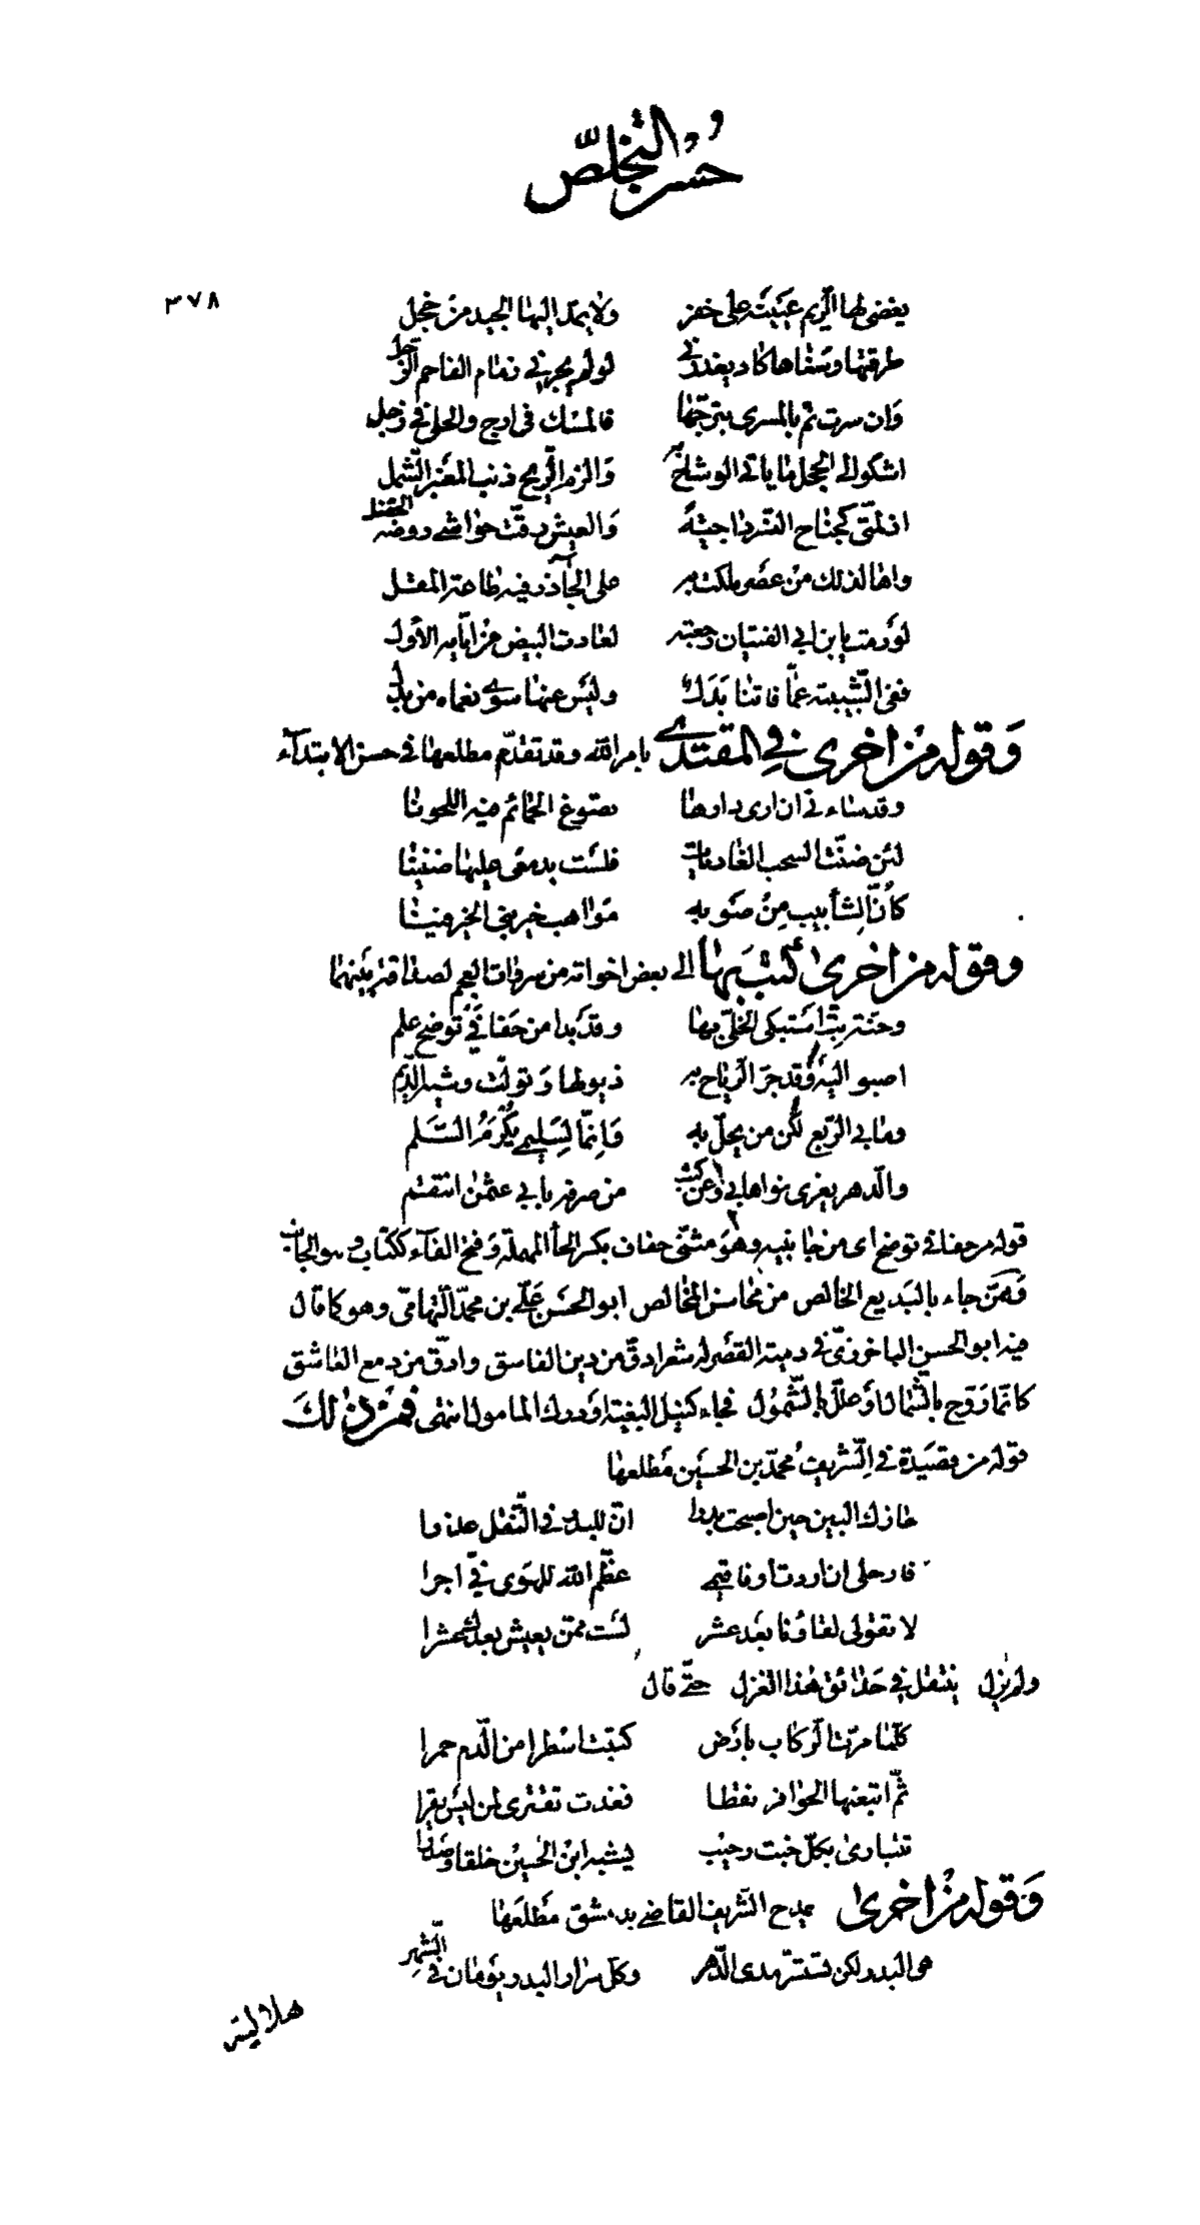 حُسْنُ التخلصّ
٣٧٨
يغضى لها الريم عينيه على خفر ولا يمدّ اليها الجيد من خجل
طرقتها وسناها كاد يغدر بى لو لم يجرنى ذمام الفاحم الرجل
وان سرت نمّ بالمسرى تبرجها فالمسك فى ارج والحلى فى زجل
اشكو الى الحجل ما ياتى الوشاح به والزم الريح ذنب العنبر الشمل
اذ لمّتى كجناح النسر داجيةً والعيش رقّت حواشى روضه الخضل
واها لذلك من عصر ملكت به على الجآذر فيه طاعة المقل
لو رمت بابن ابى الفتيان رجعته لعادت البيض من ايّامه الأول
ففى الشبيبة عمّا فاتنا بَدَلٌ وليس عنها سوى نعماه من بدل
وَقوله من اخرى فِي المقتدى بامر الله وقد تقدّم مطلعها فى حسن الابتدآء
وقد ساءنى ان ارى دارها تصوغ الحمائم فيه اللحونا
لئن ضنّت السحب الغاديات فلست بدمعى عليها ضنينا
كأنّ الشأبيب مِنْ صَوبه مَواهب خير بنى الخير فينا
وقوله من اخرى كتبَ بَها الى بعض اخوانه من سروات العجم لصداقة بينهما
وحنّة بتّ استبكى الخلىّ بها وقد بدا من حفافَى توضح علم
اصبو اليه وقد جرّ الرياح به ذيولها وتولّت وشيه الديم
وما بى الربع لكن من يحلّ به وَانّما لِسُلَيمى يُكرَمُ السَّلم
والدهر يغرى نواها بى وعن كثب من صرفه بابى عثمٰن انتقم
قوله من حفافى توضح اى من جانبيه وهو مثنّى حفاف بكسر الحآ المهملة وَفتح الفآء ككتاب وهو الجانب
وَممّن جاء بالبَديع الخالص من محاسن المخالص ابو الحسَن عَلىّ بن محمّد التهامىّ وهو كما قال
فيه ابو الحسن الباخرزىّ فى دمية القصر له شعر ادقّ من دين الفاسق وارقّ من دمع العاشق
كانّما رَوّح بالشمال اوَ علّل بالشمول فجاء كنيل البغية وَدرك المامول انتهى فمن ذلك
قوله من قصيدة فى الشريف محمّد بن الحسَين مَطلعها
حازك البين حين اصبحت بدرا انّ للبدر فى التنقل عذرا
فارحلى ان اردت او فاقيمى عظّم الله للهَوى فىّ اجرا
لا تقولى لقاؤنا بعَد عشر لسَت ممّن يعيش بعدك عشرا
ولم يزل يتنقل فى حَدائق هٰذا الغزل حتّى قال
كلّما مرّت الركاب بارَض كتبت اسْطرا من الدم حمرا
ثمّ اتبعتها الحوافر نقطا فغدت تقترى لمن ليس يقرا
تتبارىٰ بكلّ خبت رحيْب يشبه ابنَ الحسَين خلقا وصدرا
وَقوله من اخرىٰ يمدح الشريف القاضى بدمشق مَطلعَها
هى البدر ولكن تستسرّ مدى الدهر وكلّ سرار البدر يوَمان فى الشهر
هلالية